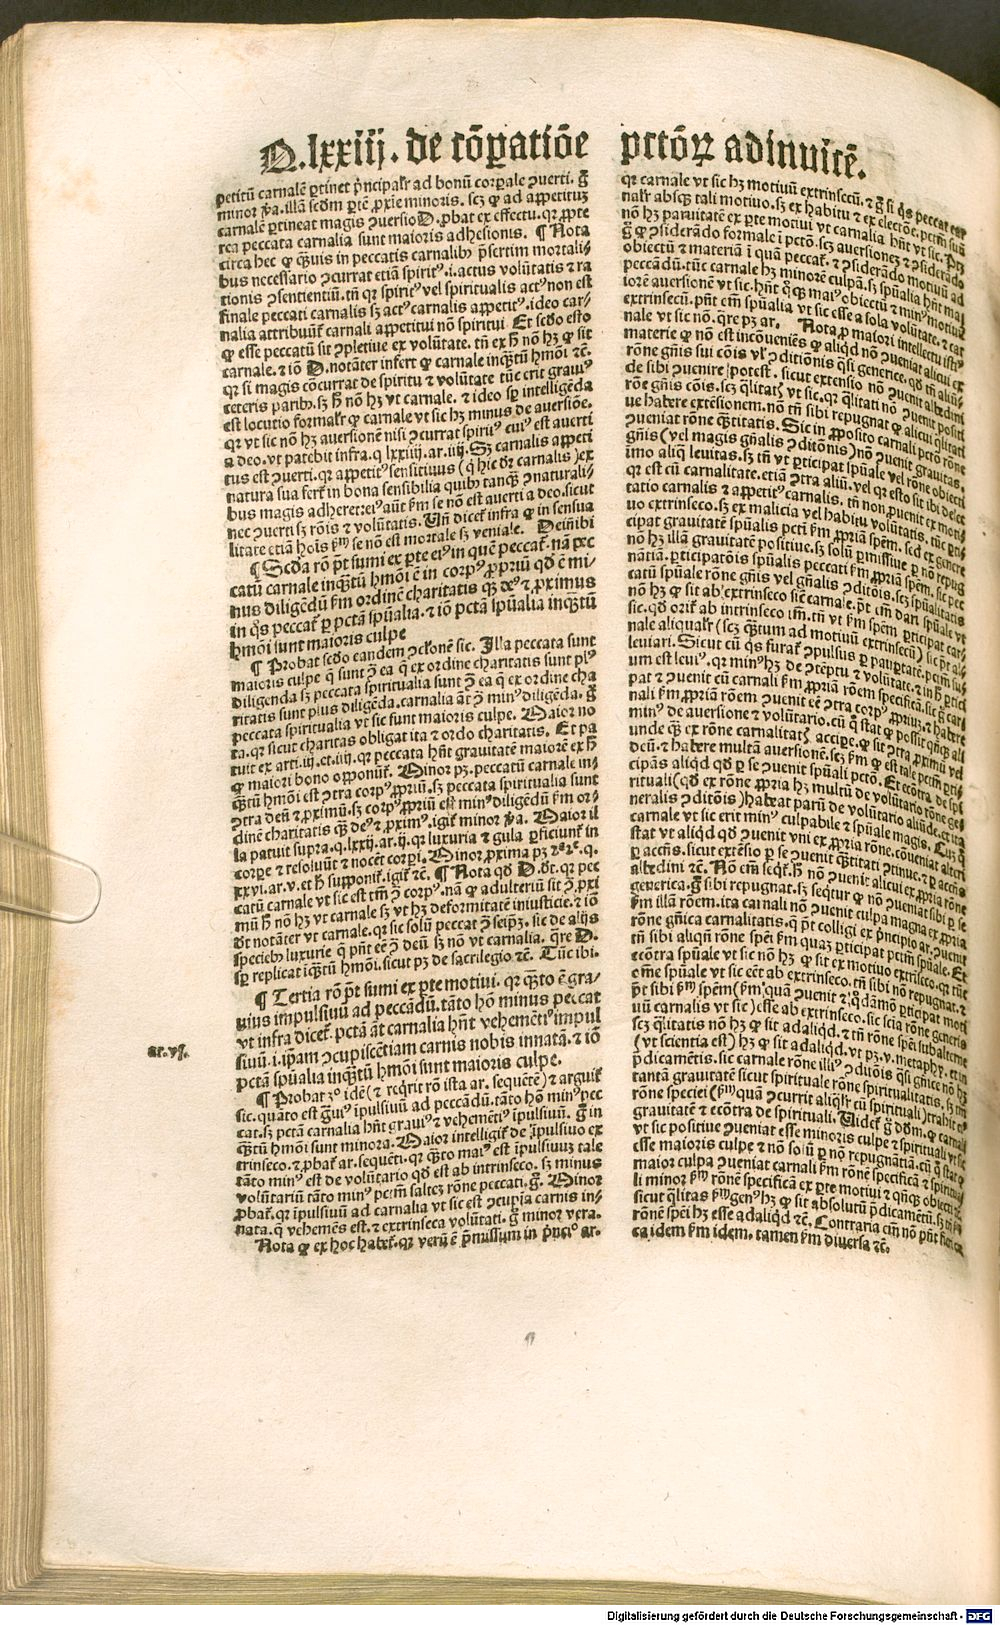 Q.lxxiij. de cōꝑatiōe pctōꝝ adinuicē.
petitū carnalē ꝑtinet pͥncipalr̄ ad bonū corꝑale ꝯuerti. g̃
minor ꝓ̃a. illā sedm ꝑtē ꝓxie minoris. scꝫ ꝙ ad appetituꝫ
carnalē ꝑtineat magis ꝯuersio D. ꝓbat ex effectu. qꝛ ꝓpte
rea peccata carnalia sunt maioris adhesionis. ¶ Nota
circa hec ꝙ quis in peccatis carnalibꝰ p̃sertim mortali⸗
bus necessario ꝯcurrat etiā spiritꝰ.i. actus volūtatis ⁊ ra
tionis ꝯsentientiū. tñ qꝛ spiritꝰ vel spiritualis actꝰ non est
finale peccati carnalis sꝫ actꝰ carnalis appetitꝰ. ideo car⸗
nalia attribuūt̃ carnali appetitui nō spiritui. Et sedo esto
ꝙ esse peccatū sit ꝯpletiue ex volūtate. tñ ex h̃ nō hꝫ ꝙ sit
carnale. ⁊ iō D. notāter infert ꝙ carnale inquātū hmōi ⁊c̄.
qꝛ si magis cōcurrat de spiritu ⁊ volūtate tūc erit grauiꝰ
ceteris paribꝰ. sꝫ h̃ nō hꝫ vt carnale. ⁊ ideo sꝑ intelligēda
est locutio formalr̄ ꝙ carnale vt sic hꝫ minus de auersiōe.
qꝛ vt sic nō hꝫ auersionē nisi ꝯcurrat spiritꝰ cuiꝰ est auerti
a deo. vt patebit infra. q. lxxiiij. ar. iiij. Sꝫ carnalis appeti
tus est ꝯuerti. qꝛ appetitꝰ sensitiuus (q̇ hic dr̄ carnalis) ex
natura sua fert̃ in bona sensibilia quibꝰ tanq̃ ꝯnaturali⸗
bus magis adheret: eiꝰ aūt km̄ se nō est auerti a deo. sicut
nec ꝯuerti sꝫ rōis ⁊ volūtatis. Vñ dicet̃ infra ꝙ in sensua
litate etiā hoīs km̄ se nō est mortale sꝫ veniale. Dein ibi
¶ Scda rō p̃t sumi ex ꝑte eiꝰ in quē peccat̃. nā pec
catū carnale inquātū hmōi ē in corpꝰ ꝓpriū qd̄ ē mi⸗
nus diligēdū km̄ ordinē charitatis q̃ deꝰ ⁊ ꝓximus
in q̊s peccat̃ ꝑ pctā sp̄ualia. ⁊ iō pctā sp̄ualia inquātū
hmōi sunt maioris culpe
¶ Probat sedo eandem ꝯclonē sic. Illa peccata sunt
maioris culpe q̄ sunt ꝯ ea q̄ ex ordine charitatis sunt plꝰ
diligenda sꝫ peccata spiritualia sunt ꝯ ea q̄ ex ordine cha
ritatis sunt plus diligēda. carnalia aūt ꝯ minꝰ diligēda. g̃
peccata spiritualia vt sic sunt maioris culpe. Maior no
ta. qꝛ sicut charitas obligat ita ⁊ ordo charitatis. Et pa
tuit ex arti. iij. et. iiij. qꝛ peccata hn̄t grauitatē maiorē ex h̃
ꝙ maiori bono opponūt̃. Minor pꝫ. peccatū carnale in⸗
quātū hmōi est ꝯtra corpꝰ ꝓpriū. sꝫ peccata spiritualia sunt
ꝯtra deū ⁊ ꝓximū. sꝫ corpꝰ ꝓpriū est minꝰ diligēdū km̄ or⸗
dinē charitatis q̃ deꝰ ⁊ ꝓximꝰ. igit̃ minor ꝓ̃a. Maior il
la patuit supra. q. lxxij. ar. ij. qꝛ luxuria ⁊ gula ꝑficiunt̃ in
corꝑe ⁊ resoluūt ⁊ nocēt corꝑi. Minor ꝓxima pꝫ 2ᵃ2ᵉ. q.
xxvi. ar. v. et h̃ supponit̃. igit̃ ⁊c̄. ¶ Nota qd̄ D. dt̄. qꝛ pec
catū carnale vt sic est tm̄ ꝯ corpꝰ. nā ꝙ adulteriū sit ꝯ ꝓxi
mū h̃ nō hꝫ vt carnale sꝫ vt hꝫ deformitatē iniusticie. ⁊ iō
dt̄ notāter vt carnale. qꝛ sic solū peccat ꝯ seipꝫ. sic de alijs
speciebꝰ luxurie q̄ pn̄t eē ꝯ deū sꝫ nō vt carnalia. q̄re D.
sꝑ replicat inquātū hmōi. sicut pꝫ de sacrilegio ⁊c̄. Tūc ibi.
¶ Tertia rō p̃t sumi ex ꝑte motiui. qꝛ quāto ē gra⸗
uius impulsiuū ad peccādū. tāto hō minus peccat
vt infra dicet̃. pctā aūt carnalia hn̄t vehemētiꝰ impul
siuū. i. ip̄am ꝯcupiscētiam carnis nobis innatā. ⁊ iō
pctā sp̄ualia inquātū hmōi sunt maioris culpe.
¶ Probat 3° idē (⁊ req̇rit rō ista ar. sequētē) ⁊ arguit̃
sic. quāto est g̃uiꝰ īpulsiuū ad peccādū. tāto hō minꝰ pec
cat. sꝫ pctā carnalia hn̄t grauiꝰ ⁊ vehemētiꝰ īpulsiuū. g̃ in
quātū hmōi sunt minora. Maior intelligit̃ de īpulsiuo ex
trinseco. ⁊ ꝓbat̃ ar. sequēti. qꝛ quāto maiꝰ est īpulsiuuꝫ tale
tāto minꝰ est de volūtario qd̄ est ab intrinseco. sꝫ minus
volūtariū tāto minꝰ pctm̄ salteꝫ rōne peccati. g̃. Minor
ꝓbat̃. qꝛ īpulsiuū ad carnalia vt sic est ꝯcupīa carnis in⸗
nata. q̄ vehemēs est. ⁊ extrinseca volūtati. g̃ minor vera.
Nota ꝙ ex hoc habet̃. qꝛ verū ē p̄missum in pͥncⁱᵒ ar.
ar. vj.
qꝛ carnale vt sic hꝫ motiuū extrinsecū. ⁊ g̃ si q̇s peccat car
nalr̄ absqꝫ tali motiuo. sꝫ ex habitu ⁊ ex electiōe. pctm̄ suū
nō hꝫ paruitatē ex ꝑte motiui vt carnalia hn̄t vt sic. Pꝫ
g̃ ꝙ ꝯsiderādo formale ī pctō. scꝫ auersioneꝫ ⁊ ꝯsiderādo
obiectū ⁊ materiā ī quā peccat̃. ⁊ ꝯsiderādo motiuū ad
peccādū. tūc carnale hꝫ minorē culpā. sꝫ sp̄ualia hn̄t ma
iorē auersionē vt sic. hn̄t q̊qꝫ maiꝰ obiectū ⁊ minꝰ motiuū
extrinsecū. pn̄t em̄ sp̄ualia vt sic esse a sola volūtate. ⁊ car
nale vt sic nō. q̄re pꝫ ar. Nota ꝑ maiori intellectu istiꝰ
materie ꝙ nō est incōueniēs ꝙ aliqd nō ꝯueniat alicui ex
rōne gn̄is sui cōis vl̓ ꝯditionis q̇si generice. qd̄ tñ aliū⸗
de sibi ꝯuenire potest. sicut extensio nō ꝯuenit albedini
rōne gn̄is cōis. scꝫ q̄litatꝭ vt sic. qꝛ q̄litati nō ꝯuenit positi
ue habere extēsionem. nō tñ sibi repugnat ꝙ alicui q̄litati
ꝯueniat rōne quātitatis. Sic in ꝓposito carnali pctō rōne
gn̄is (vel magis gn̄alis ꝯditōnis) nō ꝯuenit grauitas.
imo aliq̄ leuitas. sꝫ tñ vt ꝑticipat sp̄uale vel rōne obiecti
qꝛ est cū carnalitate. etiā ꝯtra aliū. vel qꝛ esto sit ibi delec
tatio carnalis ⁊ appetitꝰ carnalis. tñ non ꝓuenit ex moti
uo extrinseco. sꝫ ex malicia vel habitu volūtatis. tūc ꝑti
cipat grauitatē sp̄ualis pcti km̄ ꝓpriā spēm. sed ex genere
nō hꝫ illā grauitatē positiue. sꝫ solū ꝑmissiue ꝑ nō repug
nātiā. ꝑticipatōis spūalis peccati km̄ ꝓpriā spēm. sic pec
catū spūale rōne gn̄is vel gn̄alis ꝯditōis. scꝫ spūalitatis
nō hꝫ ꝙ sit ab extrinseco sic carnale. p̄t tm̄ dari spūale vt
sic. qd̄ orit̃ ab intrinseco im̄. tñ vt km̄ spēm ꝑticipat car⸗
nale aliqualr̄ (scꝫ quātum ad motiuū extrinsecū) sic p̄t al⸗
leuiari. Sicut cū q̇s furat̃ ꝯpulsus ꝑ paupertatē. pctm̄ su⸗
um est leuiꝰ. qꝛ minꝰ hꝫ de ꝯtēptu ⁊ volūtate. ⁊ in h̃ ꝑtici
pat ⁊ ꝯuenit cū carnali km̄ ꝓpriā rōem specificā. sic g̃ car⸗
nali km̄ ꝓpriā rōem ꝯuenit eē ꝯtra corpꝰ ꝓpriuꝫ. ⁊ habere
minꝰ de auersione ⁊ volūtario. cū q̊ stat ꝙ possit q̇n̄qꝫ ali
unde q̃ ex rōne carnalitatꝭ accipe. ꝙ sit ꝯtra ꝓximū vel
deū. ⁊ habere multā auersionē. scꝫ km̄ ꝙ est tale pctm̄ ꝑti⸗
cipās aliqd qd̄ ꝑ se ꝯuenit spūali pctō. Et ecōtra de spi
rituali (qd̄ ex rōne ꝓpria hꝫ multū de volūtario rōne ge⸗
neralis ꝯditōis) habeat parū de volūtario aliūde. et ita
carnale vt sic erit minꝰ culpabile ⁊ spūale magis. Cuꝫ q̊
stat vt aliqd qd̄ ꝯuenit vni ex ꝓpria rōne. cōueniat alteri
ꝑ accn̄s. sicut extēsio ꝑ se ꝯuenit quātitati ꝯtinue. ⁊ ꝑ accn̄s
albedini ⁊c̄. Nō em̄ seqt̃. h̃ nō ꝯuenit alicui ex ꝓpria rōne
generica. g̃ sibi repugnat. sꝫ seqt̃ur ꝙ nō ꝯueniat sibi ꝑ se
km̄ illā rōem. ita carnali nō ꝯuenit culpa magna ex ꝓpria
rōne gn̄ica carnalitatis. q̄ p̄t colligi ex pͥncipio ar. ꝯuenit
tñ sibi aliqn̄ rōne spēi km̄ quaꝫ ꝑticipat pctm̄ spūale. Et
ecōtra spūale vt sic nō hꝫ ꝙ sit ex motiuo extrīseco. qꝛ tūc
om̄e spūale vt sic eēt ab extrinseco. tñ sibi nō repugnat. ⁊
p̄t sibi km̄ spēm (km̄ quā ꝯuenit ⁊ q̇dāmō ꝑticipat moti
uū carnalis vt sic) esse ab extrinseco. sic scīa rōne generis
scꝫ q̄litatis nō hꝫ ꝙ sit ad aliqd. ⁊ tñ rōne spēi subalterne
(vt scientia est) hꝫ ꝙ sit ad aliqd. vt pꝫ. v. metaphꝭ. et in
p̄dicamētis. sic carnale rōne illiꝰ ꝯditōis q̇si gn̄ice nō hꝫ
tantā grauitatē sicut spirituale rōne spiritualitatis. sꝫ tñ
rōne speciei (km̄ quā ꝯcurrit aliqn̄ cū spirituali) trahit tātā
grauitatē ⁊ ecōtra de spirituali. Videt̃ g̃ dōm. ꝙ carnali
vt sic positiue ꝯueniat esse minoris culpe ⁊ spirituali vt sic
esse maioris culpe ⁊ nō solū ꝑ nō repugnātiā. cū q̊ stat ꝙ
maior culpa ꝯueniat carnali km̄ rōnē specificā ⁊ spiritua
li minor km̄ rōnē specificā ex ꝑte motiui ⁊ q̇n̄qꝫ obiecti ⁊c̄.
sicut q̄litas km̄ genꝰ hꝫ ꝙ sit absolutū p̄dicamētū. sꝫ tñ km̄
rōnē spēi hꝫ esse ad aliqd ⁊c̄. Contraria em̄ nō pn̄t fieri cir
ca idem km̄ idem. tamen km̄ diuersa ⁊c̄.
Digitalisierung gefördert durch die Deutsche Forschungsgemeinschaft - DFG